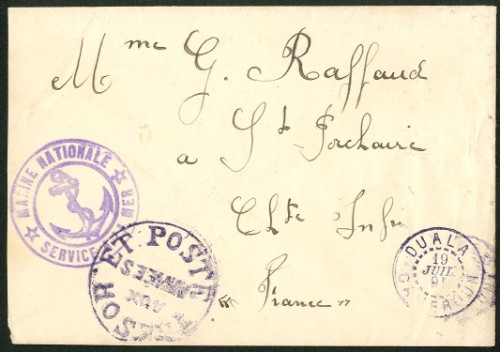 Mme G. Raffaud
St Porchaire
a
Chte Infre
France
MARINE NATIONALE
SERVICE MER
TRESOR ET POSTE
AUX ARMÉES
DUALA
19
JUIL